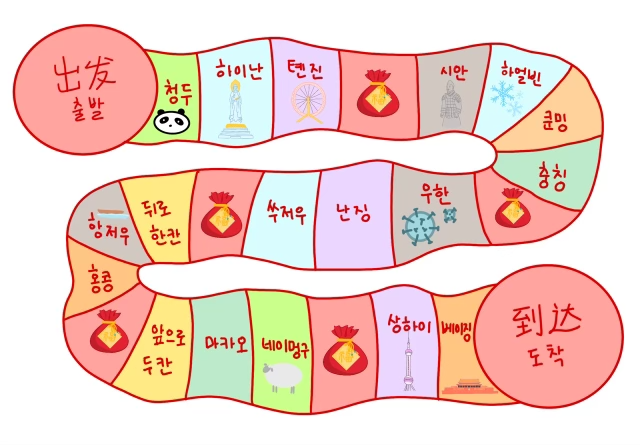 出发
출발
청두
하이난
톈진
시안
하얼빈
쿤밍
충칭
우한
난징
쑤저우
뒤로
한칸
항저우
홍콩
앞으로
두칸
마카오
네이멍구
상하이
베이징
到达
도착